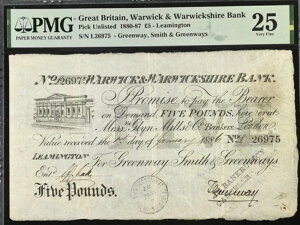 PMG
PAPER MONEY GUARANTY
Great Britain, Warwick & Warwickshire Bank
Pick Unlisted 1880-87 £5 - Leamington
S/N L26975 - Greenway, Smith & Greenways
25
Very Fine
No/26975 WARWICK & WARWICKSHIRE BANK.
I Promise to pay the Bearer
on Demand FIVE POUNDS, here or at
Messrs Glyn Mills & Co. Bankers London
Value received the day of January 1886 No/ 26975
LEAMINGTON
For Greenway Smith & Greenways
Entd
Five Pounds.
Greenway